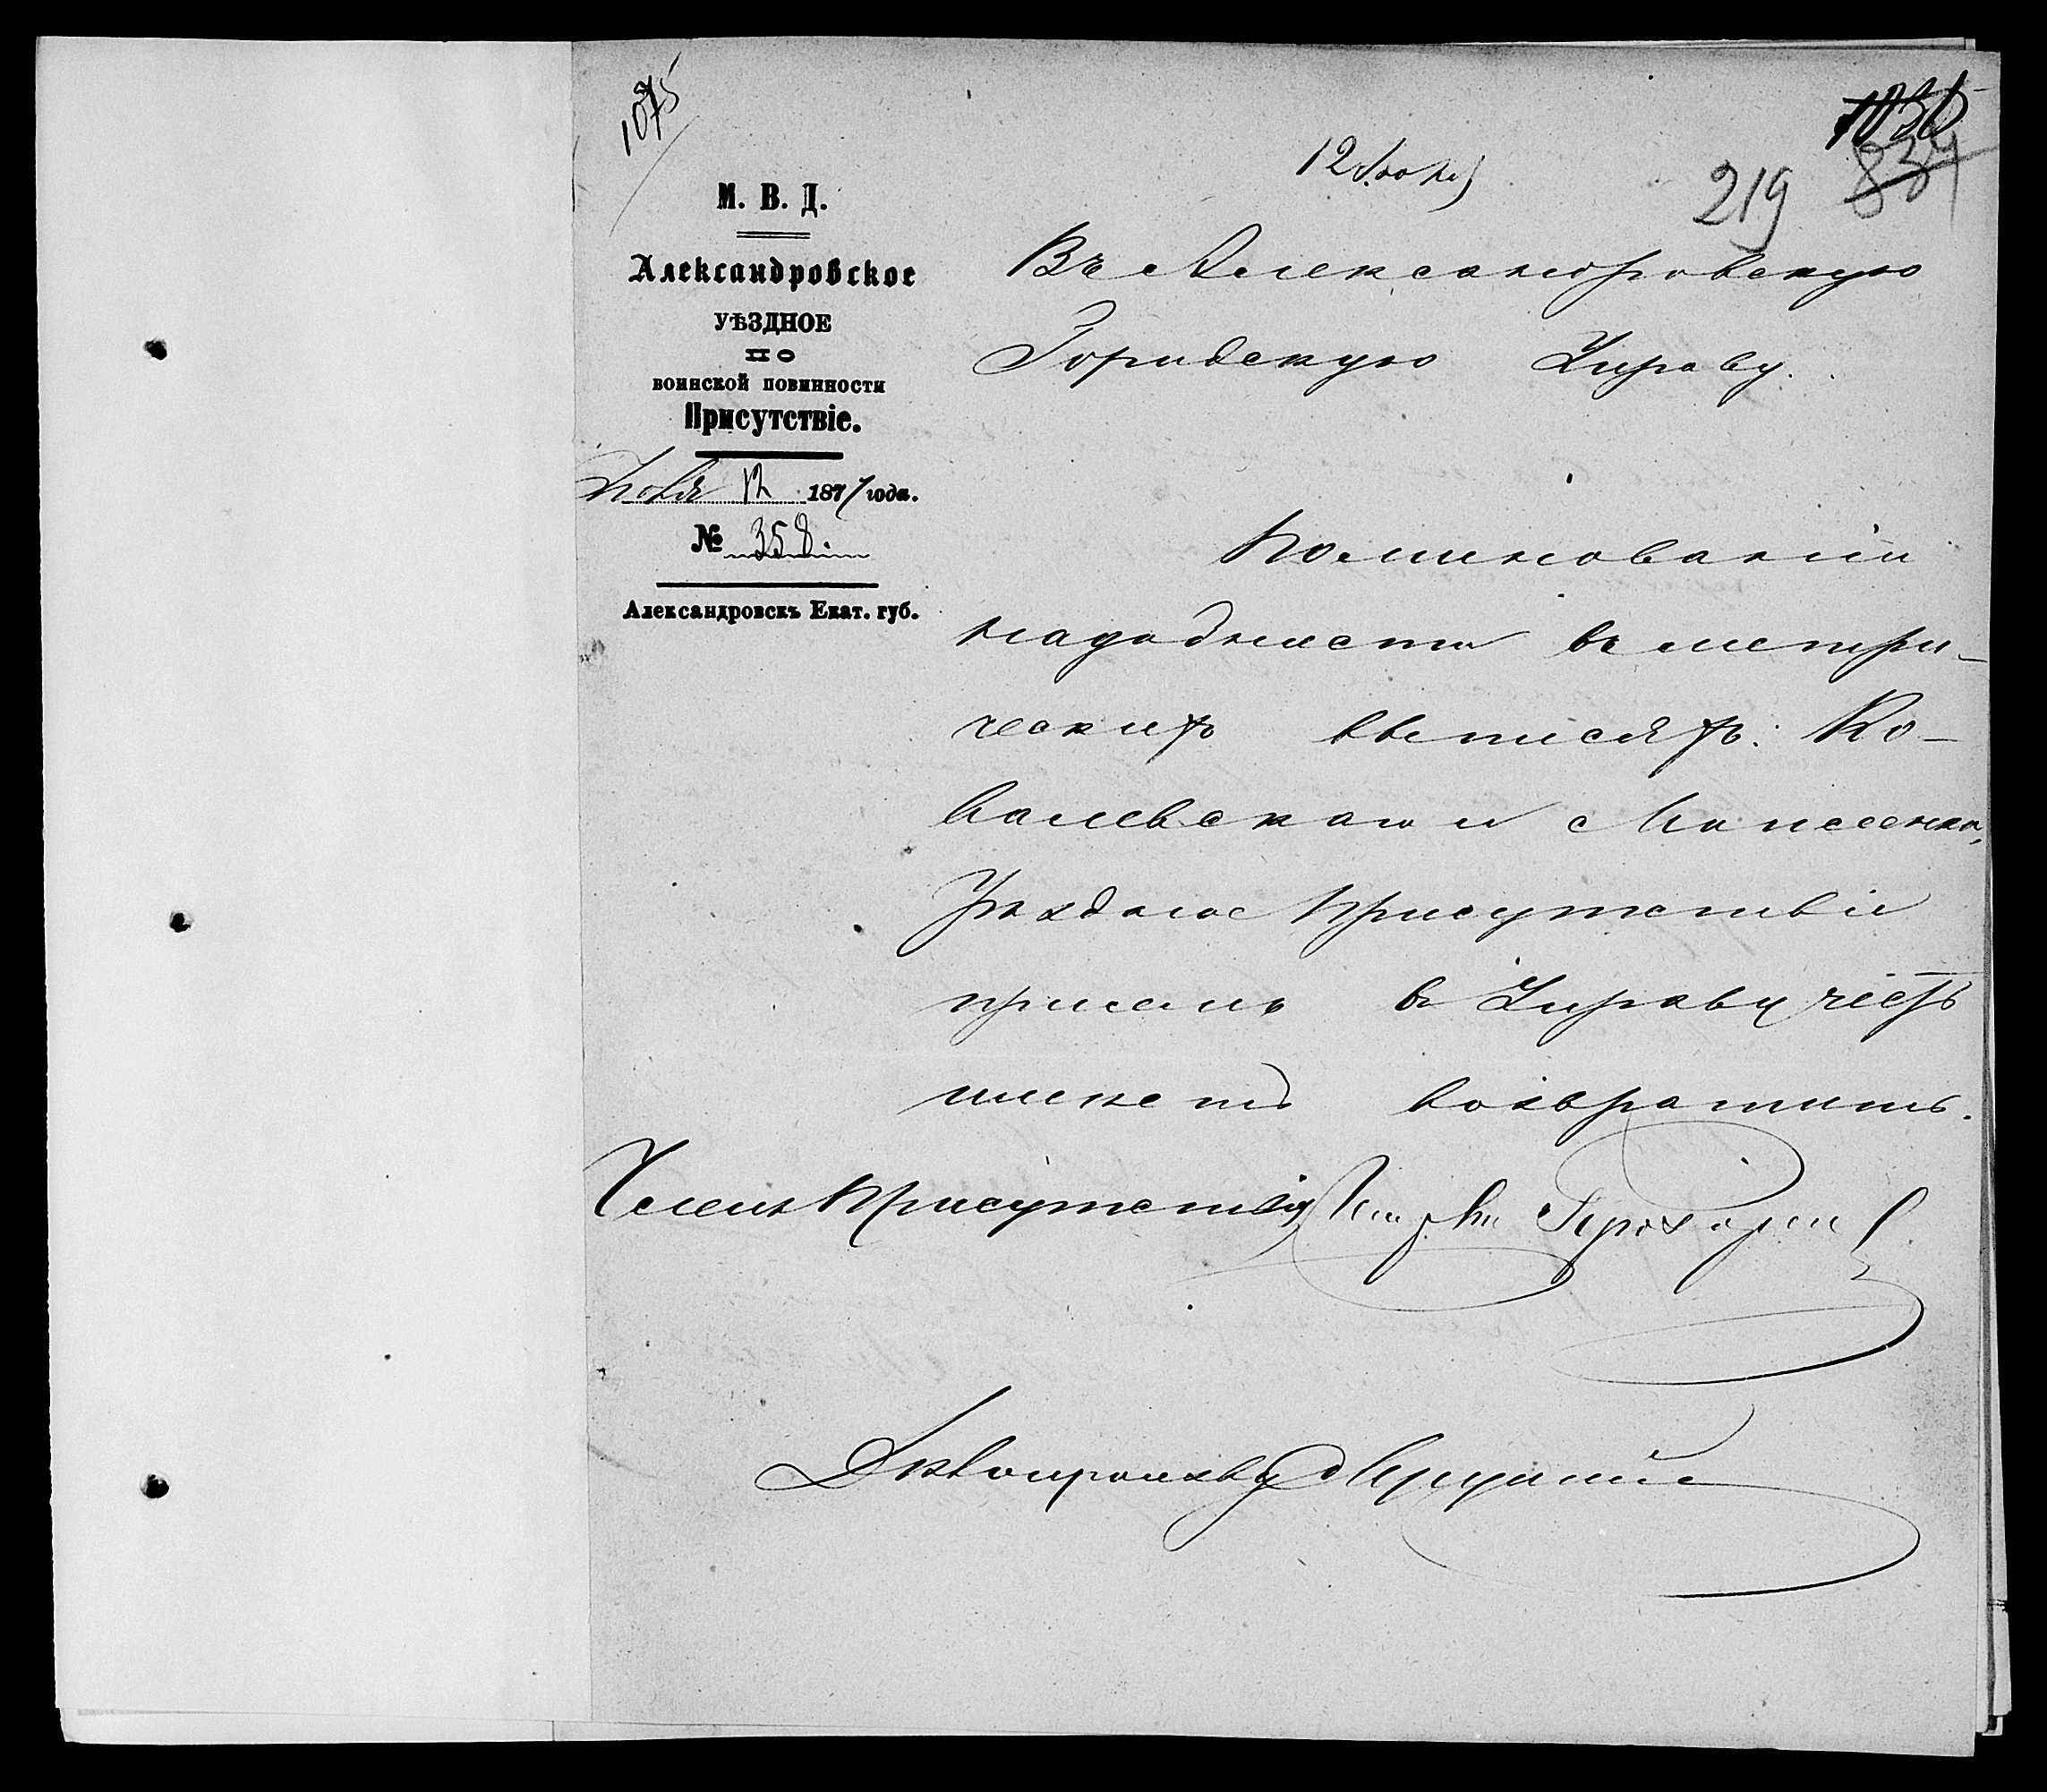 1075
1035
837
219
12 Іюня
М. В. Д.
Александровское
УѢЗДНОЕ
ПО
ВОИНСКОЙ ПОВИННОСТИ
Присутствіе.
12 1877 года.
№ 358.
Александровскъ Екат. губ.
Въ Александровскую
Городскую Управу.
По минованіи
надобности въ метри-
ческихъ выписяхъ: Ко-
валевскаго и Моисеенко,
Уѣздное Присутствіе
при семъ въ Управу честь
имѣетъ возвратить.
Членъ Присутствія
Дѣлопроизводитель